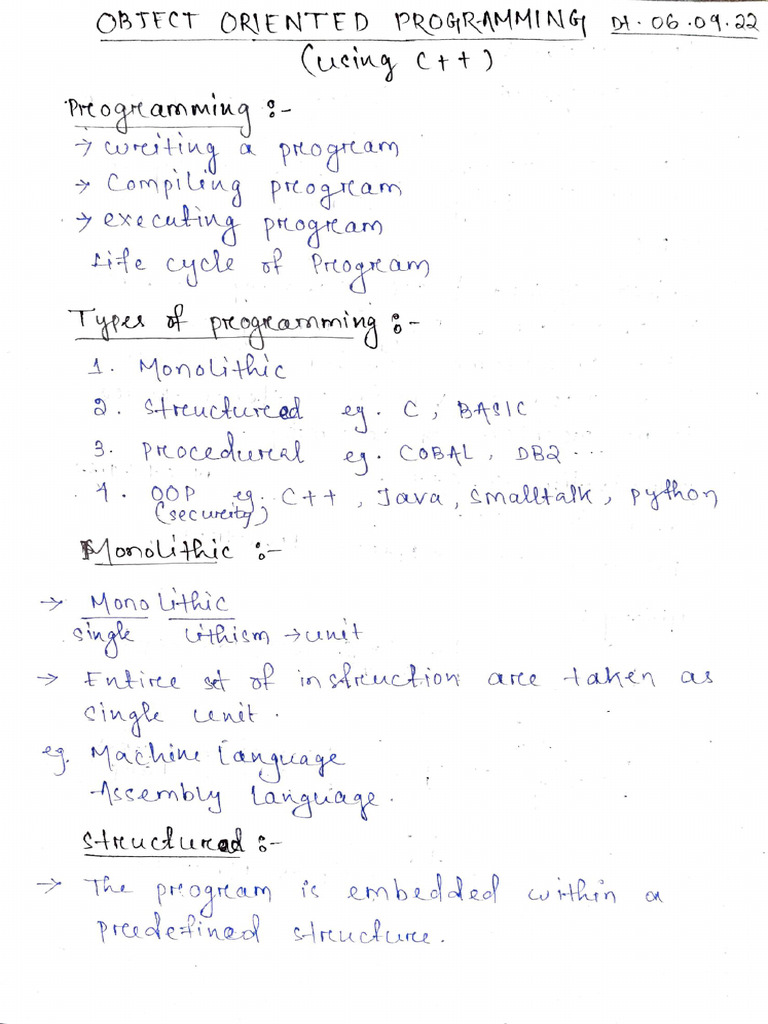 OBJECT ORIENTED PROGRAMMING Dt. 06.09.22
(using C++)
Programming :-
→ writing a program
→ Compiling program
→ executing program
Life cycle of Program
Types of programming :-
1. Monolithic
2. Structured eg. C, BASIC
3. Procedural eg. COBAL, DB2 ...
4. OOP eg. C++, Java, Smalltalk, Python
(security)
Monolithic :-
→ Mono lithic
single lithism → unit
→ Entire set of instruction are taken as
single unit.
eg. Machine Language
Assembly Language.
Structured :-
→ The program is embedded within a
predefined structure.